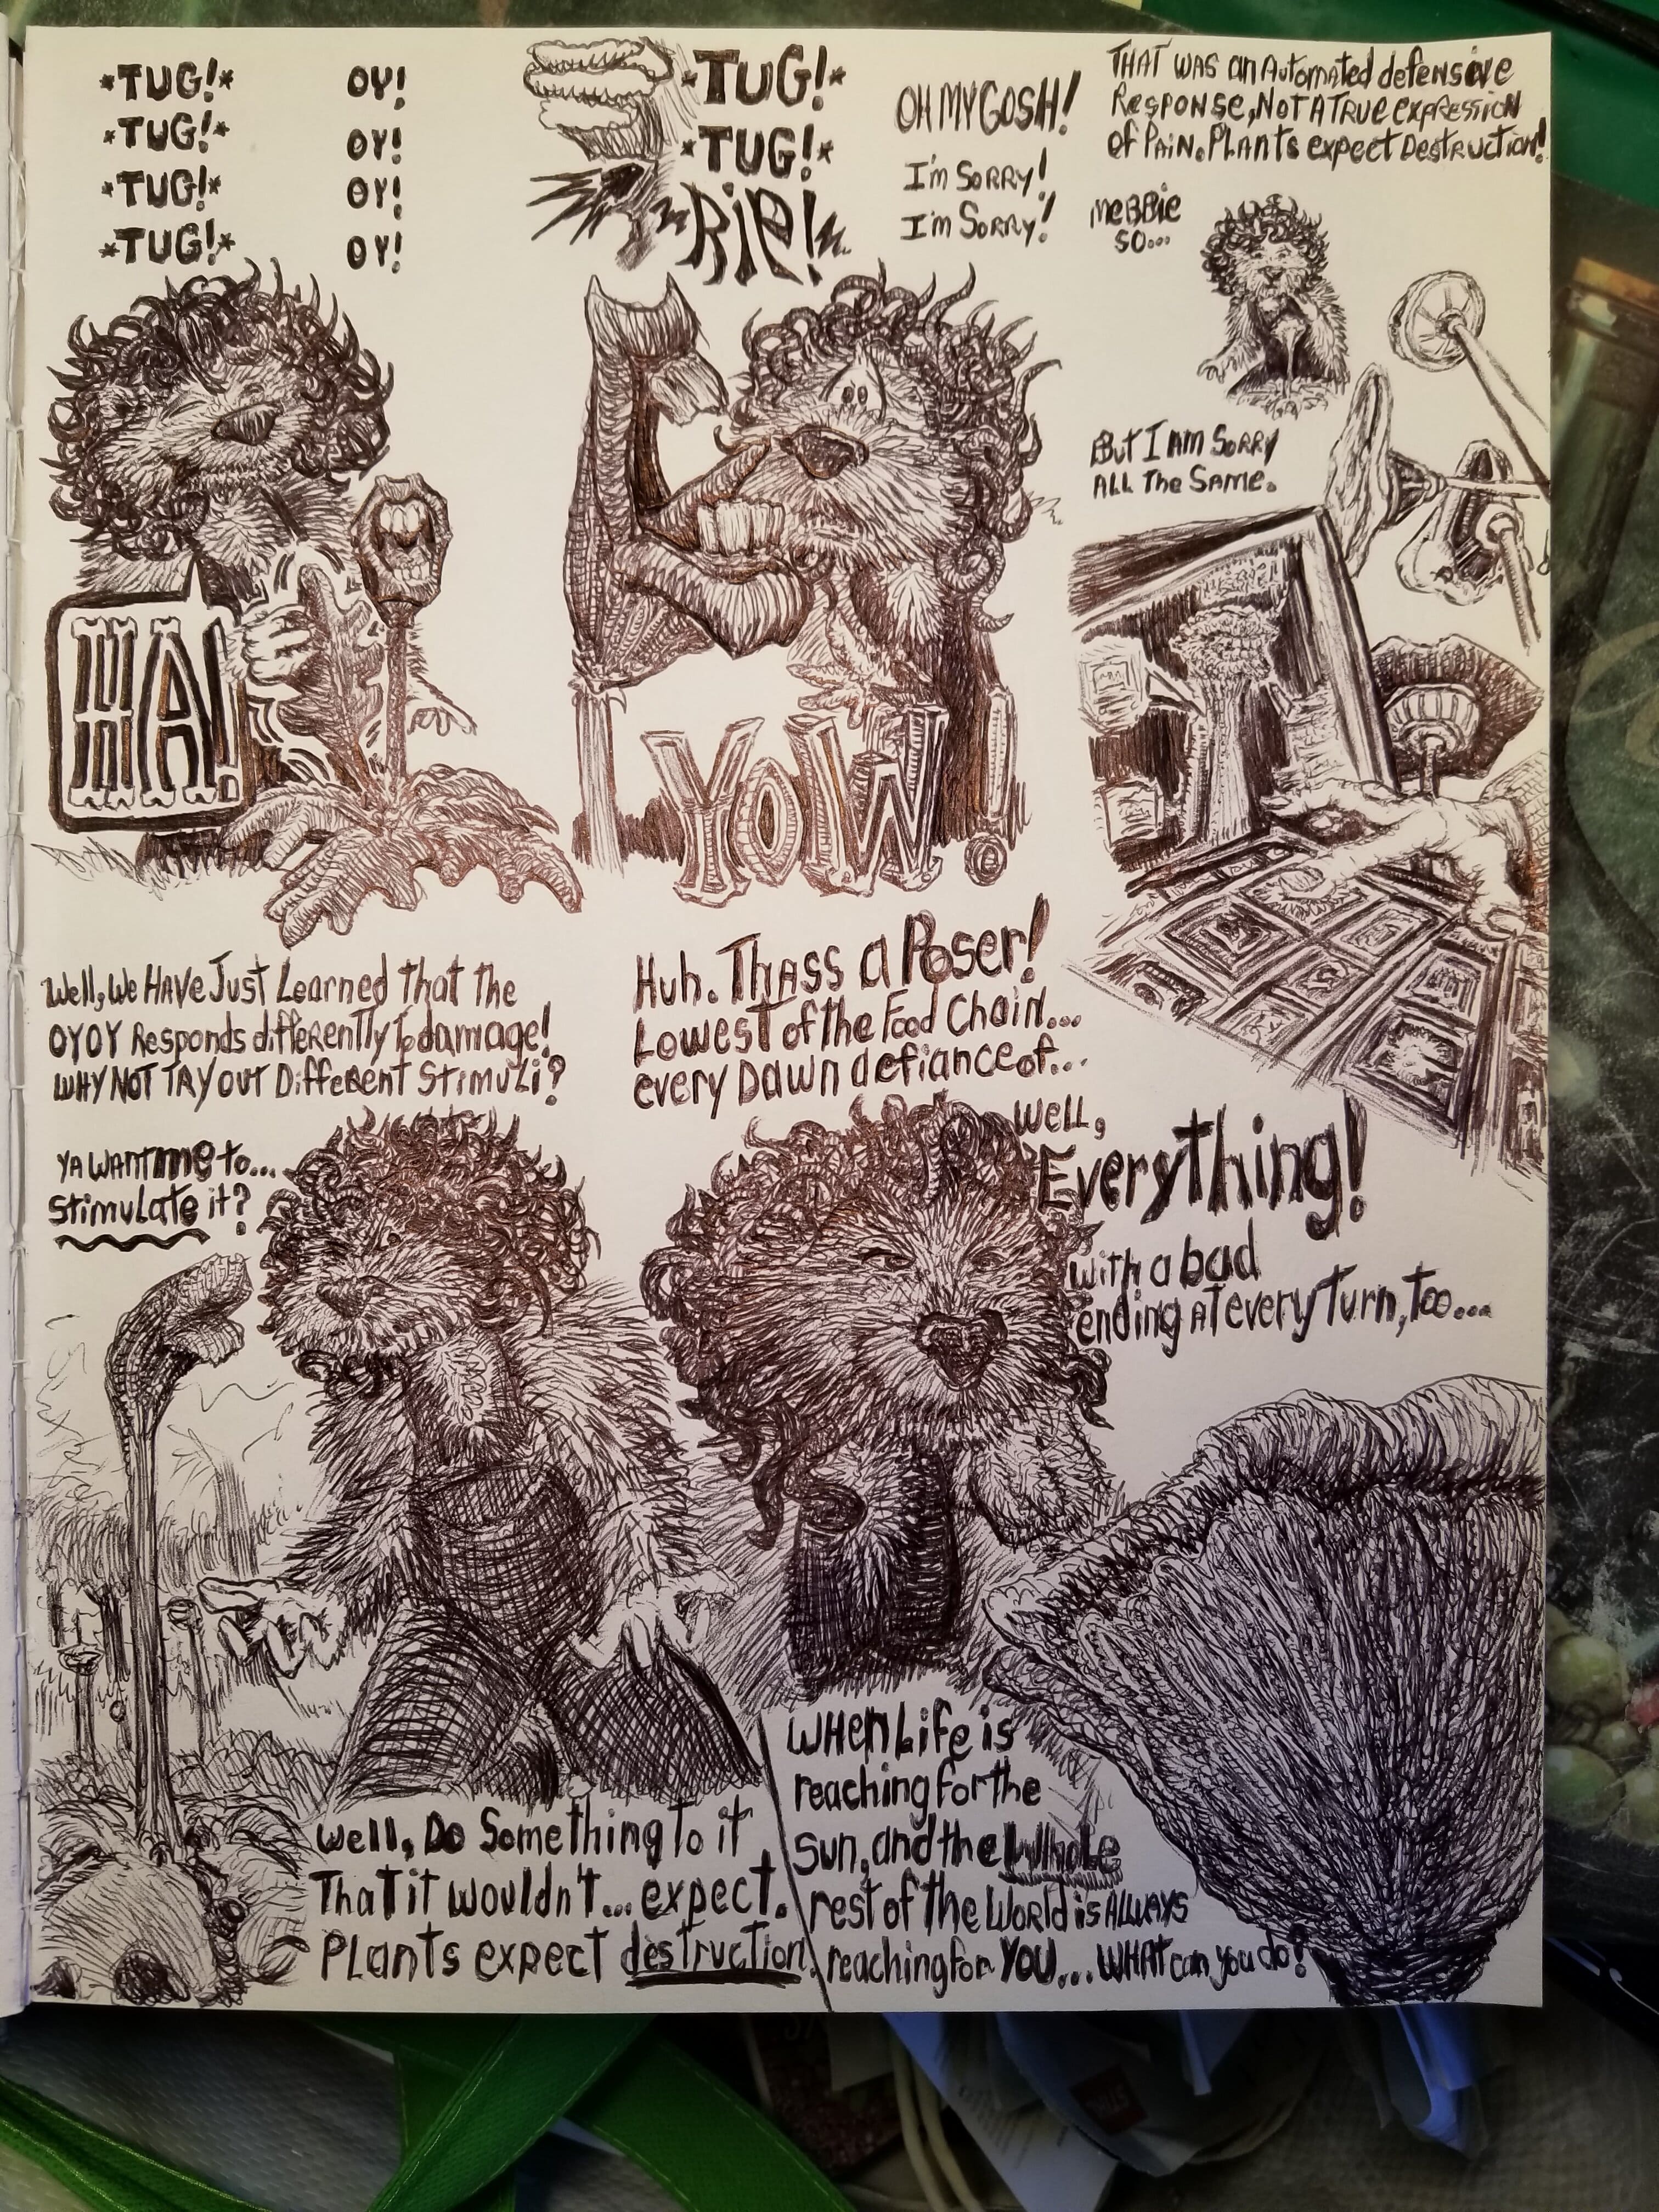 *TUG!*
*TUG!*
*TUG!*
*TUG!*
OY!
OY!
OY!
OY!
HA!
*TUG!*
*TUG!*
RIP!
OH MY GOSH!
I'm SORRY!
I'm SORRY!
YOW!
THAT WAS an Automated defensive
Response, Not A True expression
of Pain. Plants expect Destruction!
Mebbie
so...
But I am Sorry
ALL The Same.
Well, We Have Just Learned That The
OYOY Responds differently to damage!
WHY NOT TRY OUT Different Stimuli?
YA WANT me to...
Stimulate it?
Well, Do Something To it
That it wouldn't... expect.
Plants expect destruction.
Huh. Thass a Poser!
Lowest of the Food Chain...
every Dawn defiance of...
Well,
Everything!
with a bad
ending AT every Turn, Too...
When Life is
reaching for the
Sun, and the Whole
rest of the World is ALWAYS
reaching for YOU... WHAT can you do?